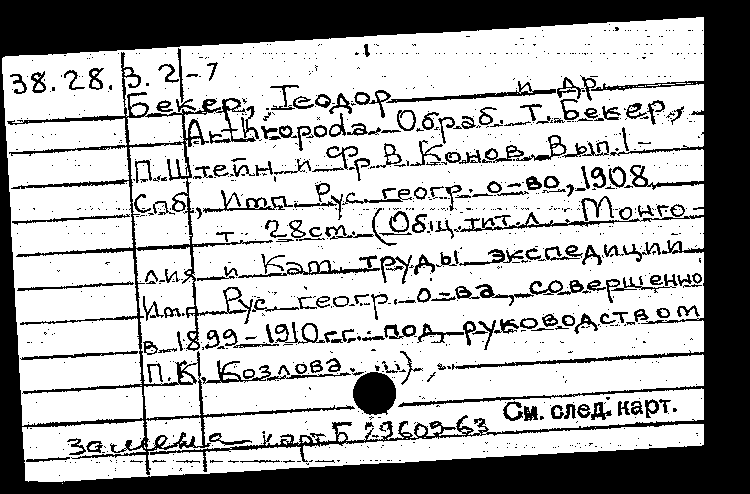 38.28.3.2-7
Бекер, Теодор и др.
Arthropoda. Обраб. Т. Бекер,
П. Штейн и Фр. В. Конов. Вып. I-
Спб, Имп. Рус. геогр. о-во, 1908
т. 28см. (Общ. тит. л.: Монго-
лия и Кам. труды экспедиции
Имп. Рус. геогр. о-ва, совершенно
в 1899-1910гг. под руководством
П.К. Козлова. III)
См. след. карт.
замена карт Б 29609-63